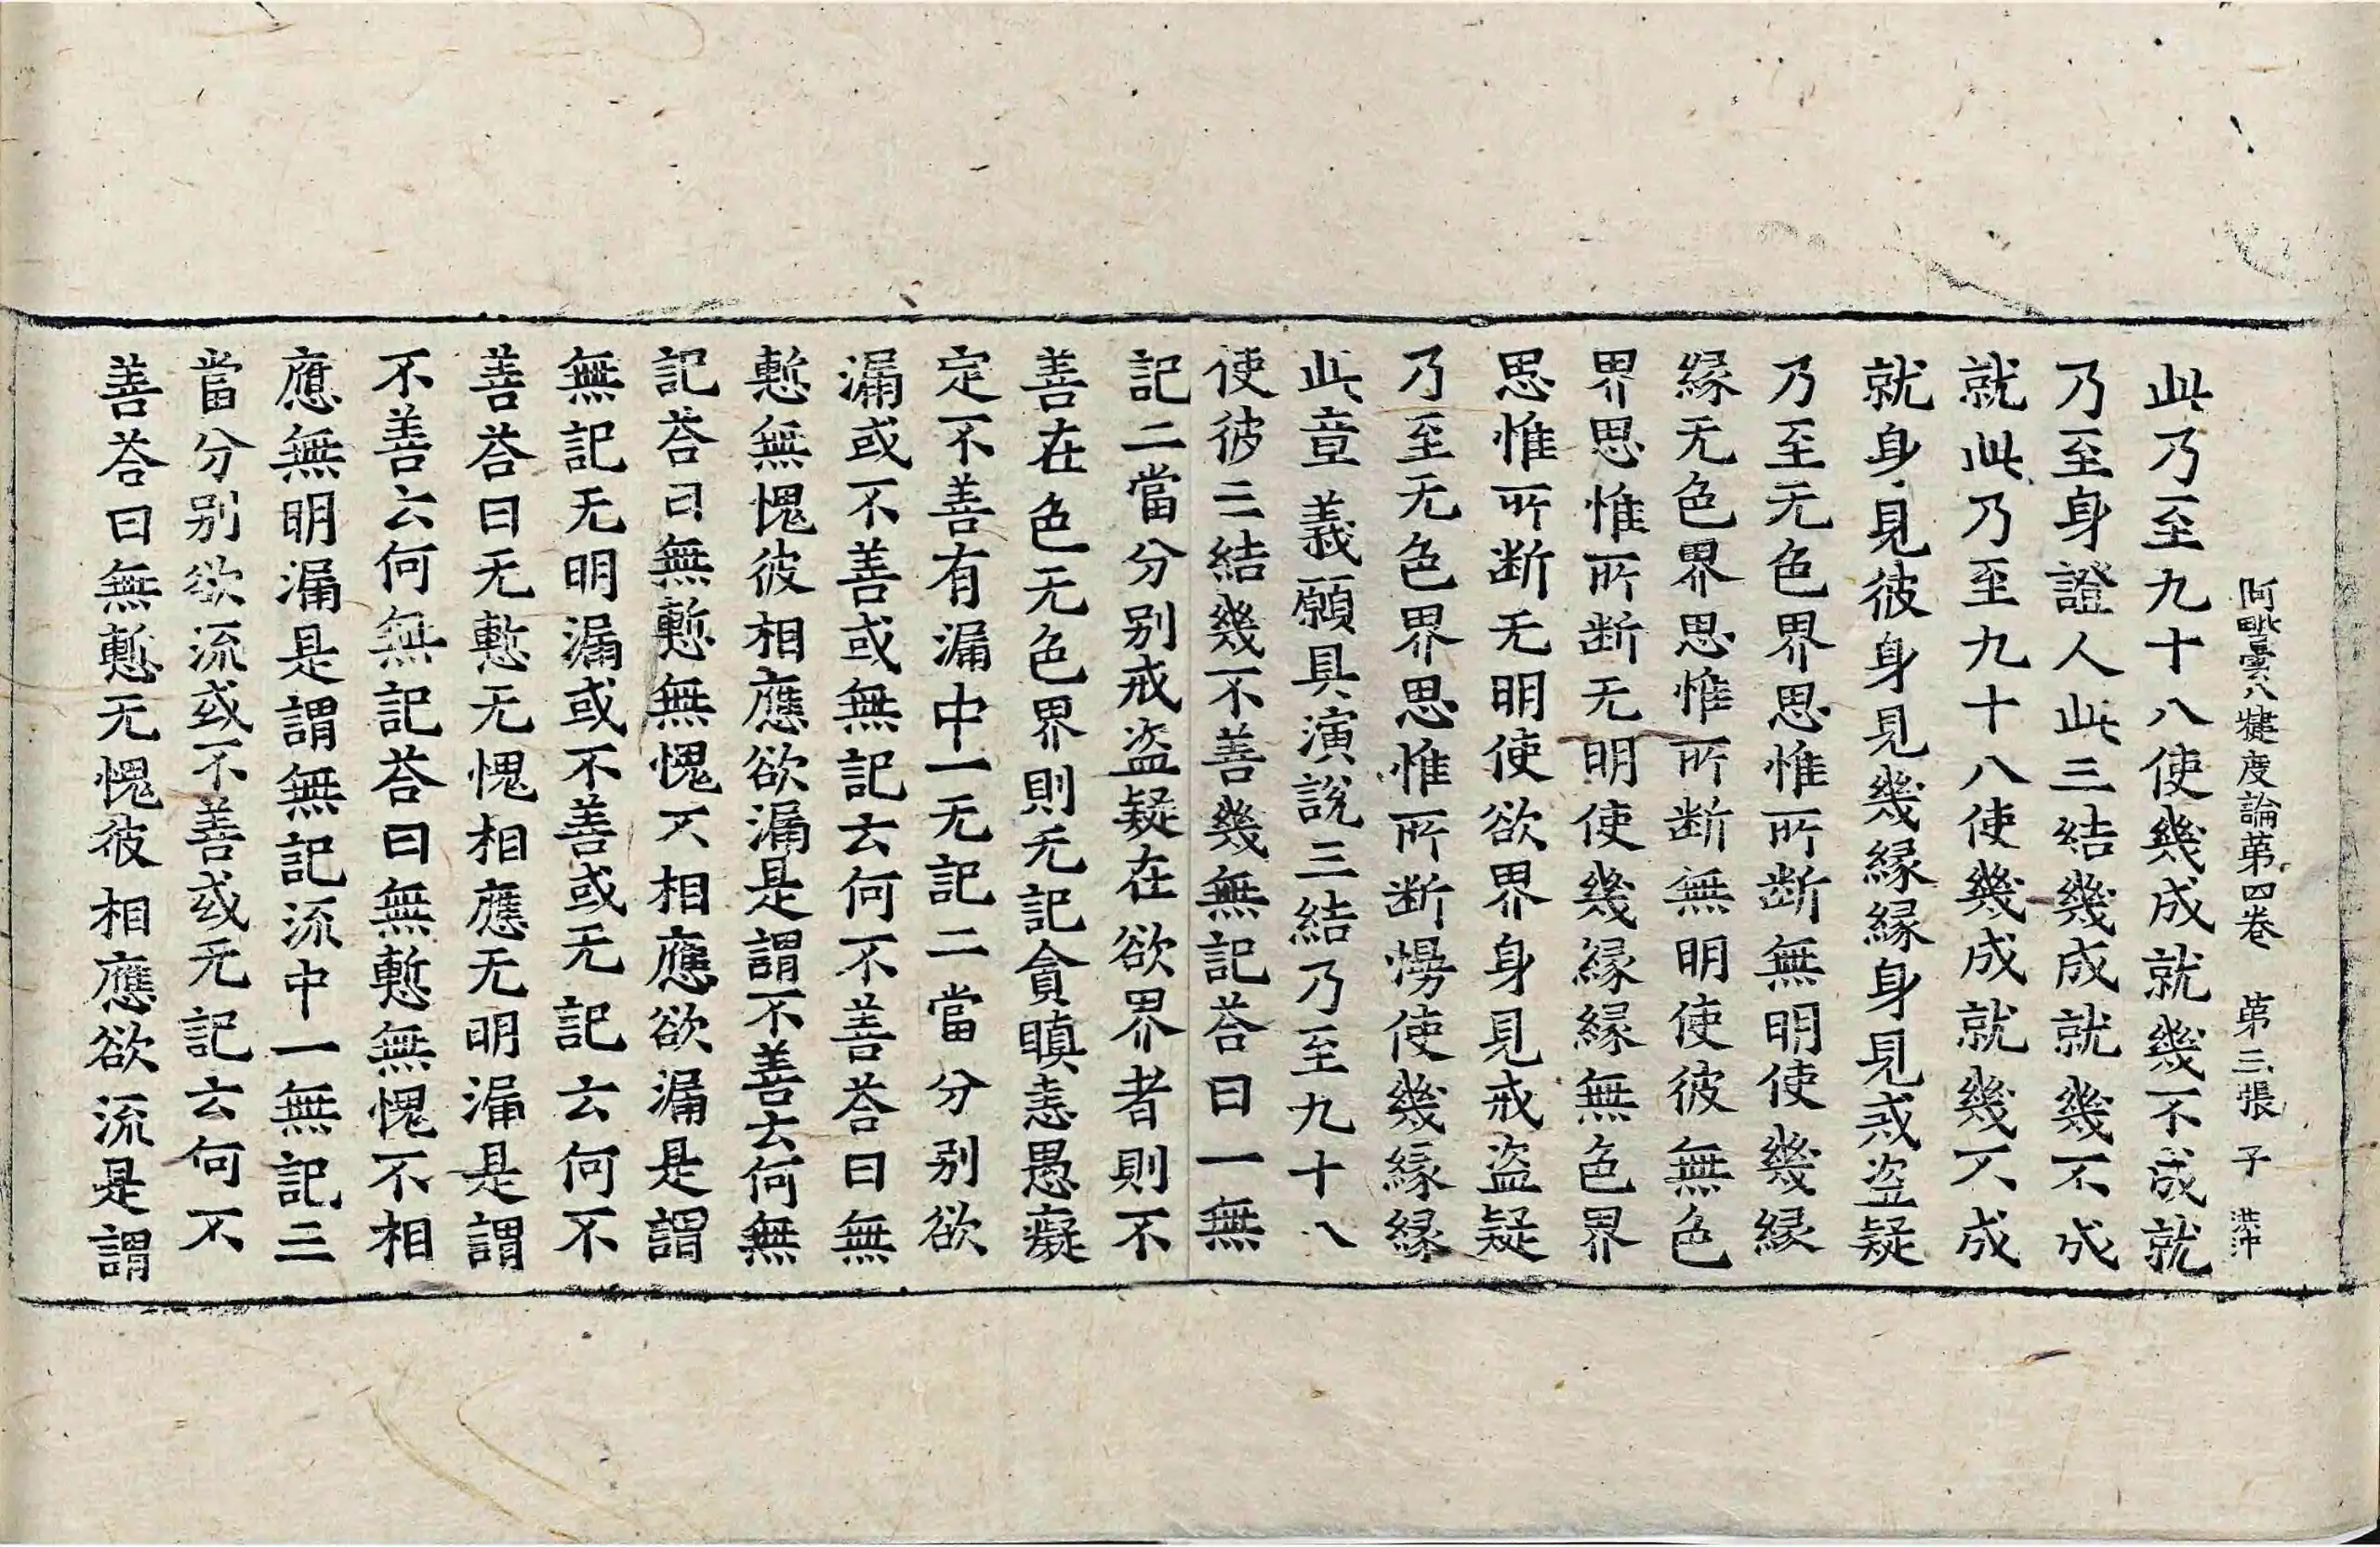 阿毗曇八犍度論第四卷　第三張　子　洪冲
此乃至九十八使幾成就幾不成就
乃至身證人此三結幾成就幾不成
就此乃至九十八使幾成就幾不成
就身見彼身見幾緣緣身見戒盜疑
乃至无色界思惟所断無明使幾緣
緣无色界思惟所断無明使彼無色
界思惟所断无明使幾緣緣無色界
思惟所断无明使欲界身見戒盜疑
乃至无色界思惟所断慢使幾緣緣
此章義願具演說三結乃至九十八
使彼三結幾不善幾無記荅曰一無
記二當分別戒盜疑在欲界者則不
善在色无色界則无記貪瞋恚愚癡
定不善有漏中一无記二當分別欲
漏或不善或無記云何不善荅曰無
慙無愧彼相應欲漏是謂不善云何無
記荅曰無慙無愧不相應欲漏是謂
無記无明漏或不善或无記云何不
善荅曰无慙无愧相應无明漏是謂
不善云何無記荅曰無慙無愧不相
應無明漏是謂無記流中一無記三
當分別欲流或不善或无記云何不
善荅曰無慙无愧彼相應欲流是謂